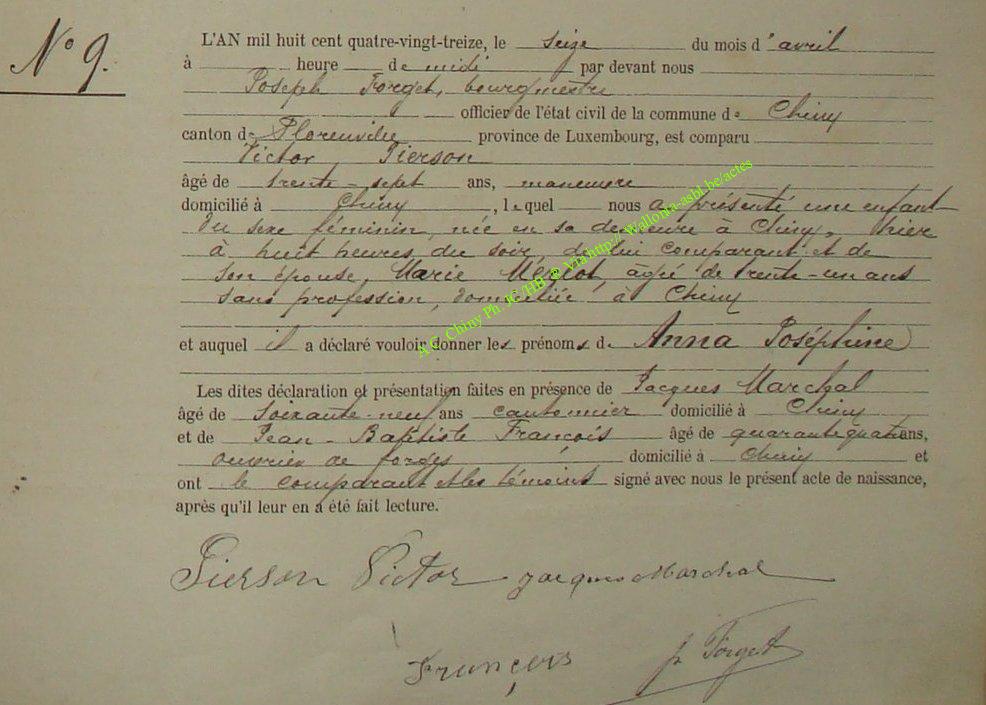 N° 9.
L'AN mil huit cent quatre-vingt-treize, le seize du mois d'avril
à heure de midi par devant nous
Joseph Forget, bourgmestre
officier de l'état civil de la commune de Chiny
canton de Florenville province de Luxembourg, est comparu
Victor Pierson
âgé de trente-sept ans, manœuvre
domicilié à Chiny, lequel nous a présenté une enfant
du sexe féminin, née en sa demeure à Chiny, hier
à huit heures du soir, de lui comparant et de
son épouse, Marie Merlot, âgée de trente-un ans
sans profession, domiciliée à Chiny
et auquel il a déclaré vouloir donner les prénoms de Anna Joséphine
Les dites déclaration et présentation faites en présence de Jacques Marchal
âgé de soixante-neuf ans cantonnier domicilié à Chiny
et de Jean-Baptiste François âgé de quarante quatre ans,
ouvrier de forges domicilié à Chiny et
ont le comparant et les témoins signé avec nous le présent acte de naissance,
après qu'il leur en a été fait lecture.
Pierson Victor Jacques Marchal
François J. Forget
A.C. Chiny Ph. JC/HB © Via http://Wallonia-asbl.be/actes